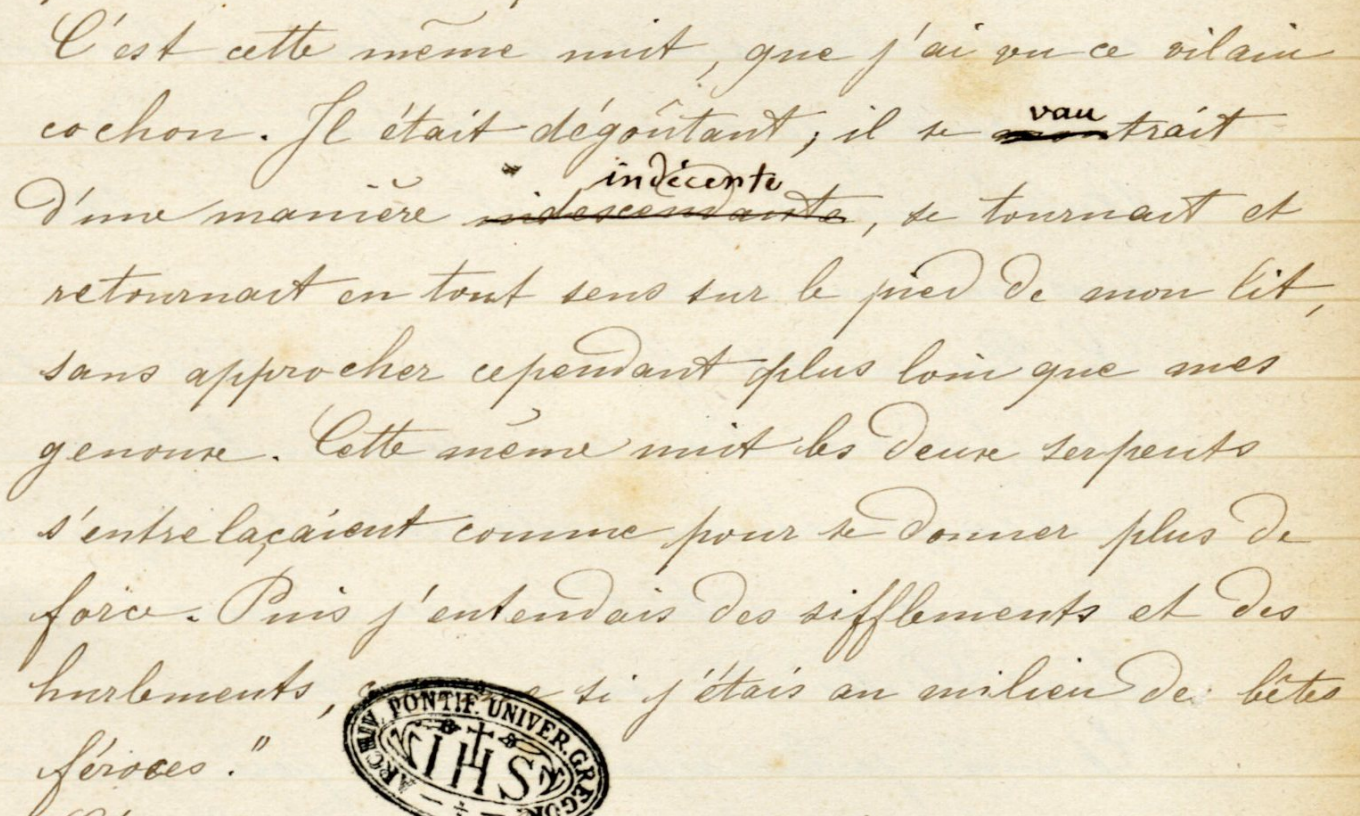 C'est cette même nuit, que j'ai vu ce vilain
cochon. Il était dégoûtant, il se vautrait
d'une manière indécente, se tournait et
retournait en tout sens sur le pied de mon lit,
sans approcher cependant plus loin que mes
genoux. Cette même nuit les deux serpents
s'entrelaçaient comme pour se donner plus de
force. Puis j'entendais des sifflements et des
hurlements, si j'étais au milieu de bêtes
féroces."
ARCHIV. PONTIF. UNIVER. GREGOR
IHS